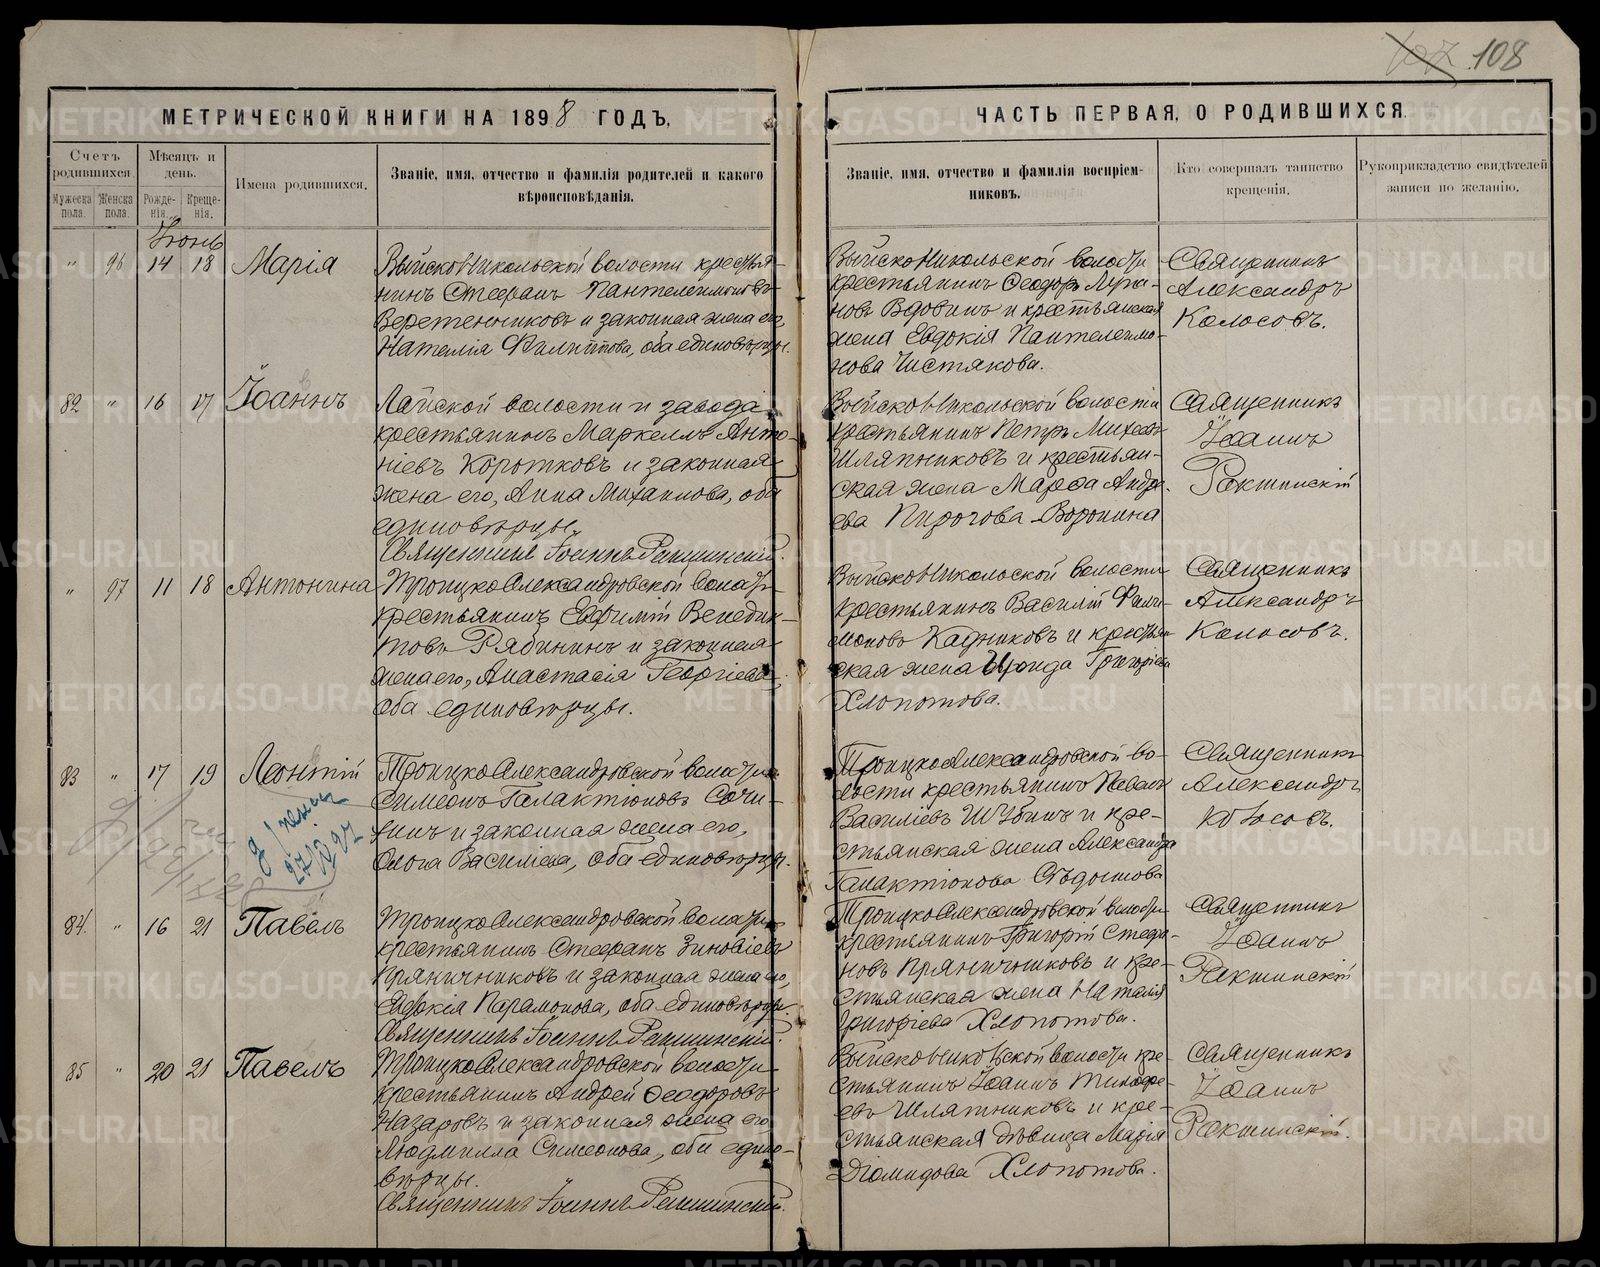 108
МЕТРИЧЕСКОЙ КНИГИ НА 1898 ГОДЪ,
ЧАСТЬ ПЕРВАЯ, О РОДИВШИХСЯ.
Счетъ родившихся.
Мужеска пола.
Женска пола.
Мѣсяцъ и день.
Рожденія.
Крещенія.
Имена родившихся.
Званіе, имя, отчество и фамилія родителей и какого вѣроисповѣданія.
Званіе, имя, отчество и фамилія воспріемниковъ.
Кто совершалъ таинство крещенія.
Рукоприкладство свидѣтелей записи по желанію.
Іюнь
" 96 14 18 Марія
ВыйскоНикольской волости крестья-
нинъ Стефанъ Пантелеимоновъ
Веретенниковъ и законная жена его,
Наталія Филиппова, оба единовѣрцы.
ВыйскоНикольской волости
крестьянинъ Ѳеодоръ
новъ Вдовинъ и крестьянская
жена Евдокія Пантелеимо-
нова Чистякова.
Священникъ
Александръ
Колосовъ.
82 " 16 17 Іоаннъ
Лайской волости и завода
крестьянинъ Маркеллъ Анто-
ніевъ Коротковъ и законная
жена его, Анна Михаилова, оба
единовѣрцы.
Священникъ Іоаннъ Ракшинскій.
ВыйскоНикольской волости
крестьянинъ Петръ Михеевъ
Шляпниковъ и крестьян-
ская жена Марѳа Андре-
ева Пирогова-Воронина
Священникъ
Іоаннъ
Ракшинскій
" 97 11 18 Антонина
ТроицкоАлександровской волости
крестьянинъ Евфимій Венедик-
товъ Рябининъ и законная
жена его, Анастасія Георгіева,
оба единовѣрцы.
ВыйскоНикольской волости
крестьянинъ Василій Фили-
моновъ Кадниковъ и крестьян
ская жена Ираида Григоріева
Хлопотова.
Священникъ
Александръ
Колосовъ.
83 " 17 19 Леонтій
ТроицкоАлександровской волости
Симеонъ Галактіоновъ Сочи-
нинъ и законная жена его,
Ольга Василіева, оба единовѣрцы.
ТроицкоАлександровской во-
лости крестьянинъ Павелъ
Василіевъ Шубинъ и кре-
стьянская жена Александра
Галактіонова
Священникъ
Александръ
Колосовъ.
84. " 16 21 Павелъ
ТроицкоАлександровской волости
крестьянинъ Стефанъ Зиновіевъ
Пряничниковъ и законная жена его,
Евдокія Парамонова, оба единовѣрцы.
Священникъ Іоаннъ Ракшинскій.
ТроицкоАлександровской волости
крестьянинъ Григорій Стефа-
новъ Пряничниковъ и кре-
стьянская жена Наталія
Григоріева Хлопотова.
Священникъ
Іоаннъ
Ракшинскій
85 " 20 21 Павелъ
ТроицкоАлександровской волости
крестьянинъ Андрей Ѳеодоровъ
Назаровъ и законная жена его
Людмилла Симеонова, оба едино-
вѣрцы.
Священникъ Іоаннъ Ракшинскій.
ВыйскоНикольской волости кре-
стьянинъ Іоаннъ Тимофе-
евъ Шляпниковъ и кре-
стьянская дѣвица Марія
Діомидова Хлопотова.
Священникъ
Іоаннъ
Ракшинскій.
METRIKI.GASO-URAL.RU